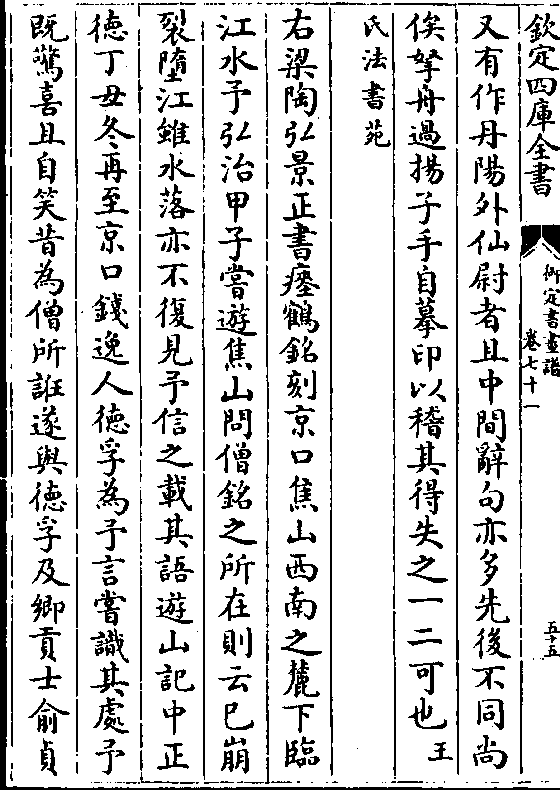 欽定四庫全書
御定書畫譜
卷七十一
五十五
又有作丹陽外仙尉者且中間辭句亦多先後不同尚
俟拏舟過揚子手自摹印以稽其得失之一二可也王
氏法書苑
右梁陶弘景正書瘞鶴銘刻京口焦山西南之麓下臨
江水予弘治甲子嘗遊焦山問僧銘之所在則云已崩
裂墮江雖水落亦不復見予信之載其語遊山記中正
德丁丑冬再至京口錢逸人德孚為予言嘗識其處予
既驚喜且自笑昔為僧所誑遂與德孚及鄉貢士俞貞